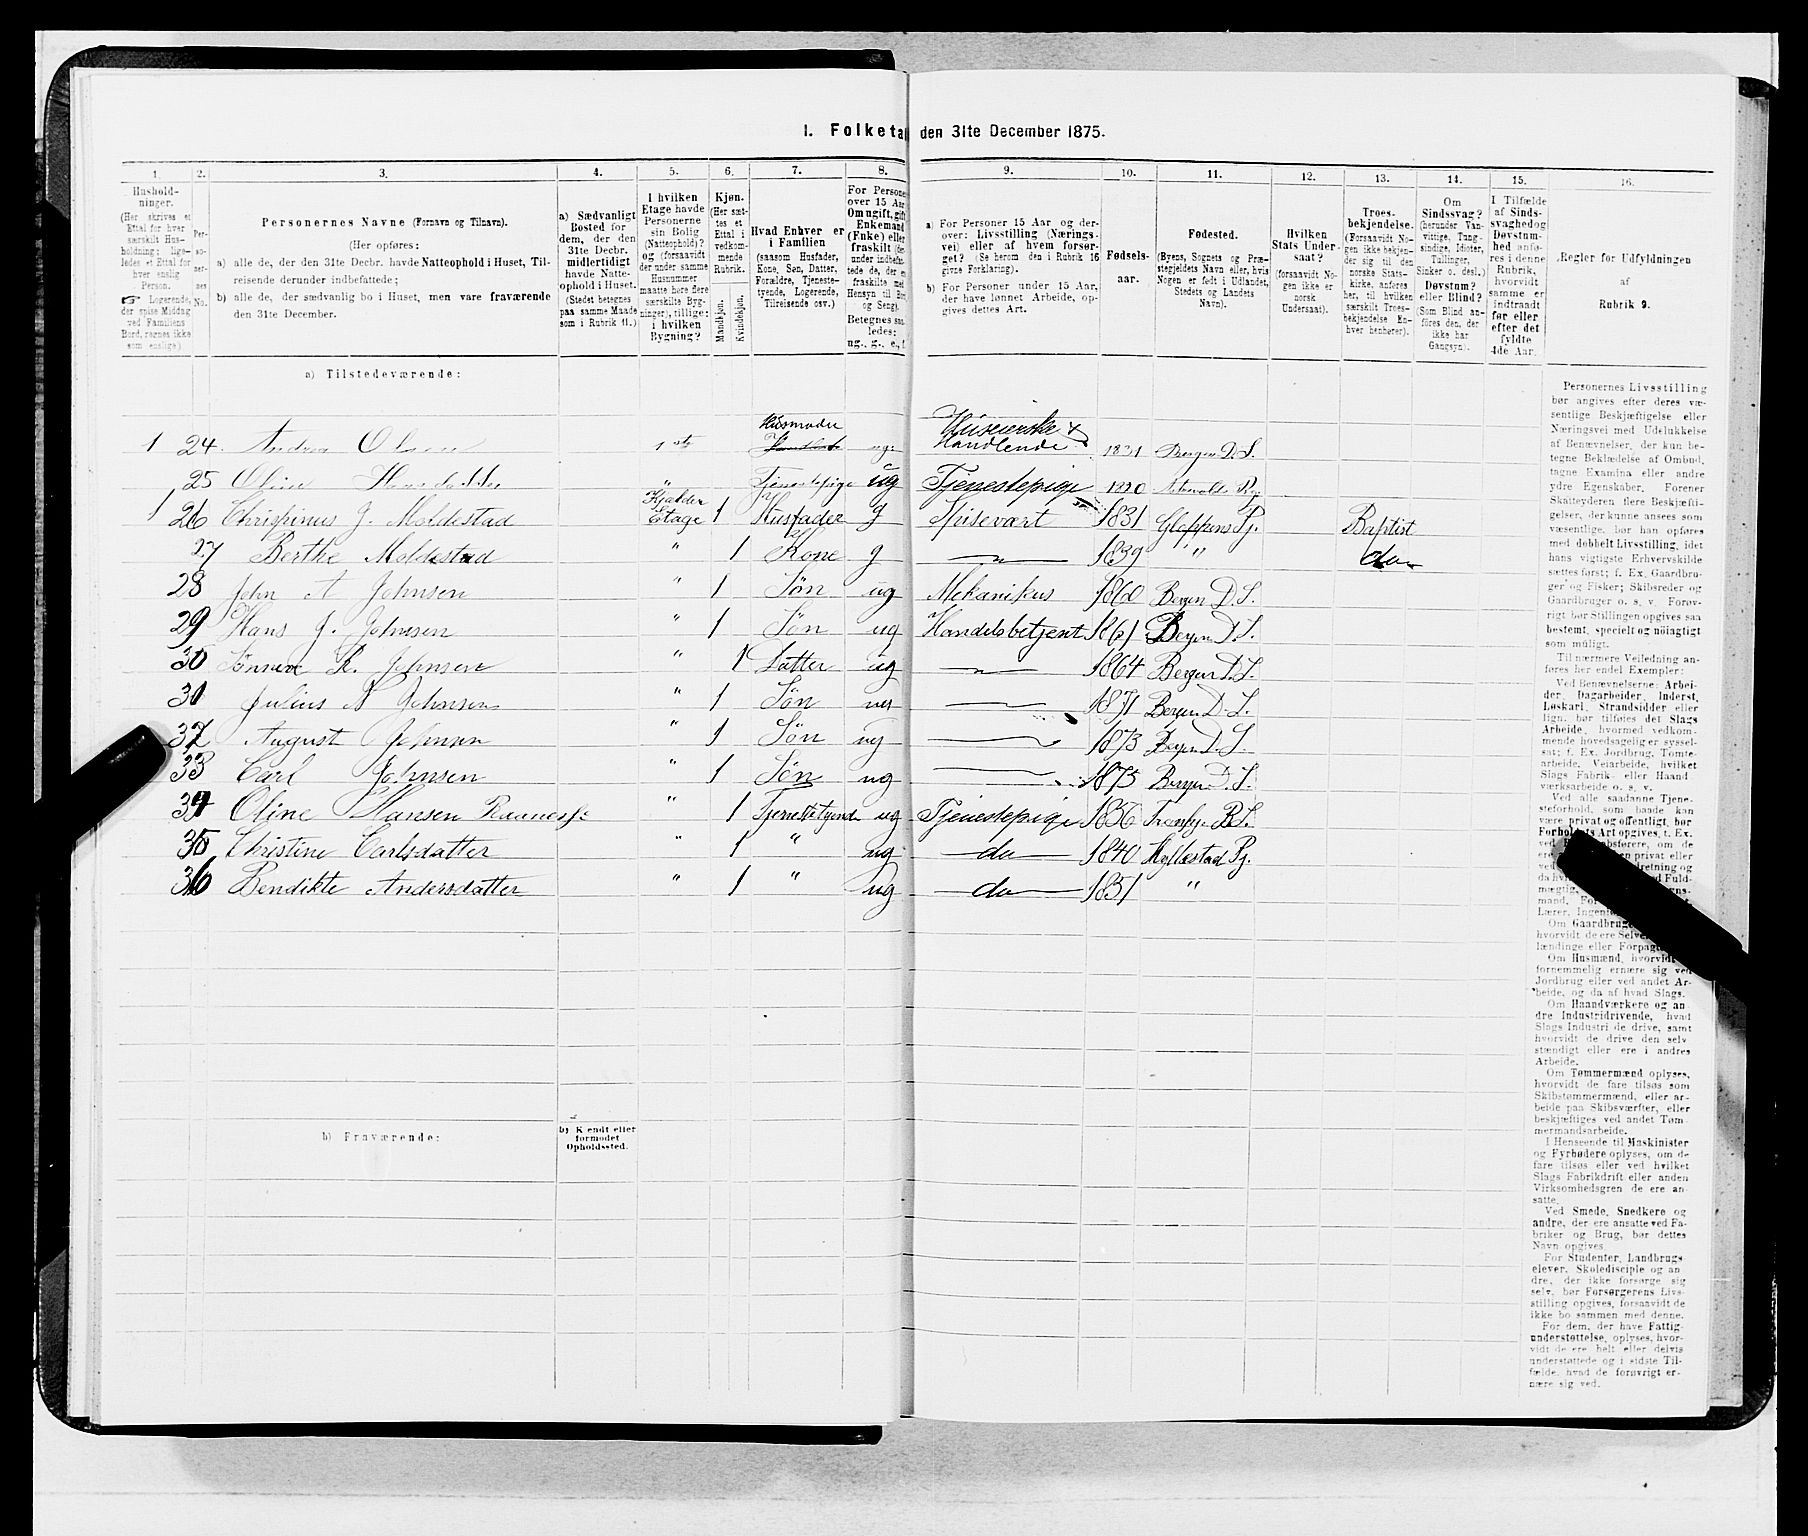 1. Folketal den 31te December 1875.
1. 2. 3. 4. 5. 6. 7. 8. 9. 10. 11. 12. 13. 14. 15. 16.
Hushold-
ninger.
(Her skrives et
Ettal for hver
særskilt Hus-
holdning; lige-
ledes et Ettal for
hver enslig
Person.
☞ Logerende,
der spise Middag
ved Familiens
Bord, regnes ikke
som enslige)
Per-
soner-
nes
No.
Personernes Navne (Fornavn og Tilnavn).
(Her opføres:
a) alle de, der den 31te Decbr. havde Natteophold i Huset, Til-
reisende derunder indbefattede;
b) alle de, der sædvanlig bo i Huset, men vare fraværende
den 31te December.
a) Sædvanligt
Bosted for
dem, der den
31te Decbr.
midlertidigt
havde Natte-
ophold i Huset.
(Stedet betegnes
paa samme Maade
som i Rubrik 11.)
I hvilken
Etage havde
Personerne
sin Bolig
(Natteophold)?
og (forsaavidt
der under samme
Husnummer
maatte høre flere
særskilte Byg-
ninger), tillige:
i hvilken
Bygning?
Kjøn.
(Her sæt-
tes et
Ettal i
vedkom-
mende
Rubrik.
Mandkjøn.
Kvindekjøn.
Hvad Enhver er
i Familien
(saasom Husfader,
Kone, Søn, Datter,
Forældre, Tjeneste-
tyende, Logerende,
Tilreisende osv.)
For Personer
over 15 Aar
Om ugift, gift
Enkemand
(Enke) eller
fraskilt
Betegnes saa-
ledes:
ug., g., e., f.
a) For Personer 15 Aar og der-
over: Livsstilling (Nærings-
vei) eller af hvem forsør-
get? (Se herom den i Rubrik 16
givne Forklaring).
b) For Personer under 15 Aar,
der have lønnet Arbeide, op-
gives dettes Art.
Fødsels-
aar.
Fødested.
(Byens, Sognets og Præ-
stegjeldets Navn eller, hvis
Nogen er født i Udlandet,
Stedets og Landets
Navn).
Hvilken
Stats Under-
saat?
(forsaavidt No-
gen ikke er
norsk
Undersaat).
Troes-
bekjendelse.
(Forsaavidt No-
gen ikke bekjen-
der sig til den
norske Stats-
kirke, anføres
her, til hvilken
særskilt Troes-
bekjendelse En-
hver henhører).
Om
Sindssvag?
(herunder Van-
vittige, Tung-
sindige, Idioter,
Tullinger,
Sinker o. desl.)
Døvstum?
eller Blind?
(Som Blind an-
føres den, der
ikke har
Gangsyn).
I Tilfælde
af Sinds-
svaghed og
Døvstum-
hed anfø-
res i denne
Rubrik,
hvorvidt
samme er
indtraadt
før eller
efter det
fyldte
4de Aar.
Regler for Udfyldningen
af
Rubrik 9.
a) Tilstedeværende:
1 24 Andrea Olsen 1ste Husmoder ug Huseierske & Handlende 1831 Bergen D. S.
25 Oline " Tjenestepige ug Tjenestepige
1 26 Chrispinus J. Moldestad Kjælder Etage 1 Husfader g Spisevært 1831 Gloppens Pj. Baptist
27 Berthe Moldestad " 1 Kone g — " — 1839 " do
28 John A Johnsen " 1 Søn ug Mekanikus 1860 Bergen D. S.
29 Hans J. Johnsen " 1 Søn ug Handelsbetjent 1861 Bergen D. S.
30 R. Johnsen " 1 Datter ug — " — 1864 Bergen D. S.
31 Julius A Johnsen " 1 Søn ug 1871 Bergen D. S.
32 August Johnsen " 1 Søn ug 1873 Bergen D. S.
33 Carl Johnsen " 1 Søn ug 1875 Bergen D. S.
34 Oline Hansen " 1 Tjenestetyende ug Tjenestepige 1856
35 Christine Carlsdatter " 1 " ug do 1840 Pj.
36 Bendikte Andersdatter " 1 " ug do 1851 "
b) Fraværende:
b) Kjendt eller
formodet
Opholdssted.
Personernes Livsstilling
bør angives efter deres væ-
sentlige Beskjæftigelse eller
Næringsvei med Udelukkelse
af Benævnelser, der kun be-
tegne Beklædelse af Ombud,
tagne Examina eller andre
ydre Egenskaber. Forener
Skatteyderen flere Beskjæfti-
gelser, der kunne ansees som
væsentlige, bør han opføres
med dobbelt Livsstilling, idet
hans vigtigste Erhvervskilde
sættes først; f. Ex. Gaardbru-
ger og Fisker; Skibsreder og
Gaardbruger o. s. v. Forøv-
rigt bør Stillingen opgives saa
bestemt, specielt og nøiagtigt
som muligt.
Til nærmere Veiledning an-
føres her endel Exempler:
Ved Benævnelserne: Arbei-
der, Dagarbeider, Inderst,
Løskarl, Strandsidder eller
lign. bør tilføies det Slags
Arbeide, hvormed vedkom-
mende hovedsagelig er syssel-
sat; f. Ex. Jordbrug, Tomte-
arbeide, Veiarbeide, hvilket
Slags Fabrik- eller Haand-
værksarbeide o. s. v.
Ved alle saadanne Tjene-
steforhold, som baade kan
være privat og offentligt, bør
Forholdets Art opgives, f. Ex.
Om Gaardbruger
hvorvidt de ere Selv
lændinge eller
Om Husmænd, hvorvidt
fornemmelig ernære sig ved
Jordbrug eller ved andet Ar-
beide, og da af hvad Slags.
Om Haandværkere og an-
dre Industridrivende, hvad
Slags Industri de drive, samt
hvorvidt de drive den selv-
stændigt eller ere i andres
Arbeide.
Om Tømmermænd oplyses,
hvorvidt de fare tilsøs som
Skibstømmermænd, eller ar-
beide paa Skibsværfter, eller
beskjæftiges ved andet Tøm-
mermandsarbeide.
I Henseende til Maskinister
og Fyrbødere oplyses, om de
fare tilsøs eller ved hvilket
Slags Fabrikdrift eller anden
Virksomhedsgren de ere an-
satte.
Ved Smede, Snedkere og
andre, der ere ansatte ved Fa-
briker og Brug, bør dettes
Navn opgives.
For Studenter, Landbrugs-
elever, Skoledisciple og an-
dre, der ikke forsørge sig
selv, bør Forsørgerens Livs-
stilling opgives, forsaavidt de
ikke bo sammen med denne.
For dem, der have Fattig-
understøttelse, oplyses, hvor-
vidt de ere helt eller delvis
understøttede og i sidste Til-
fælde, hvad de forøvrigt er-
nære sig ved.